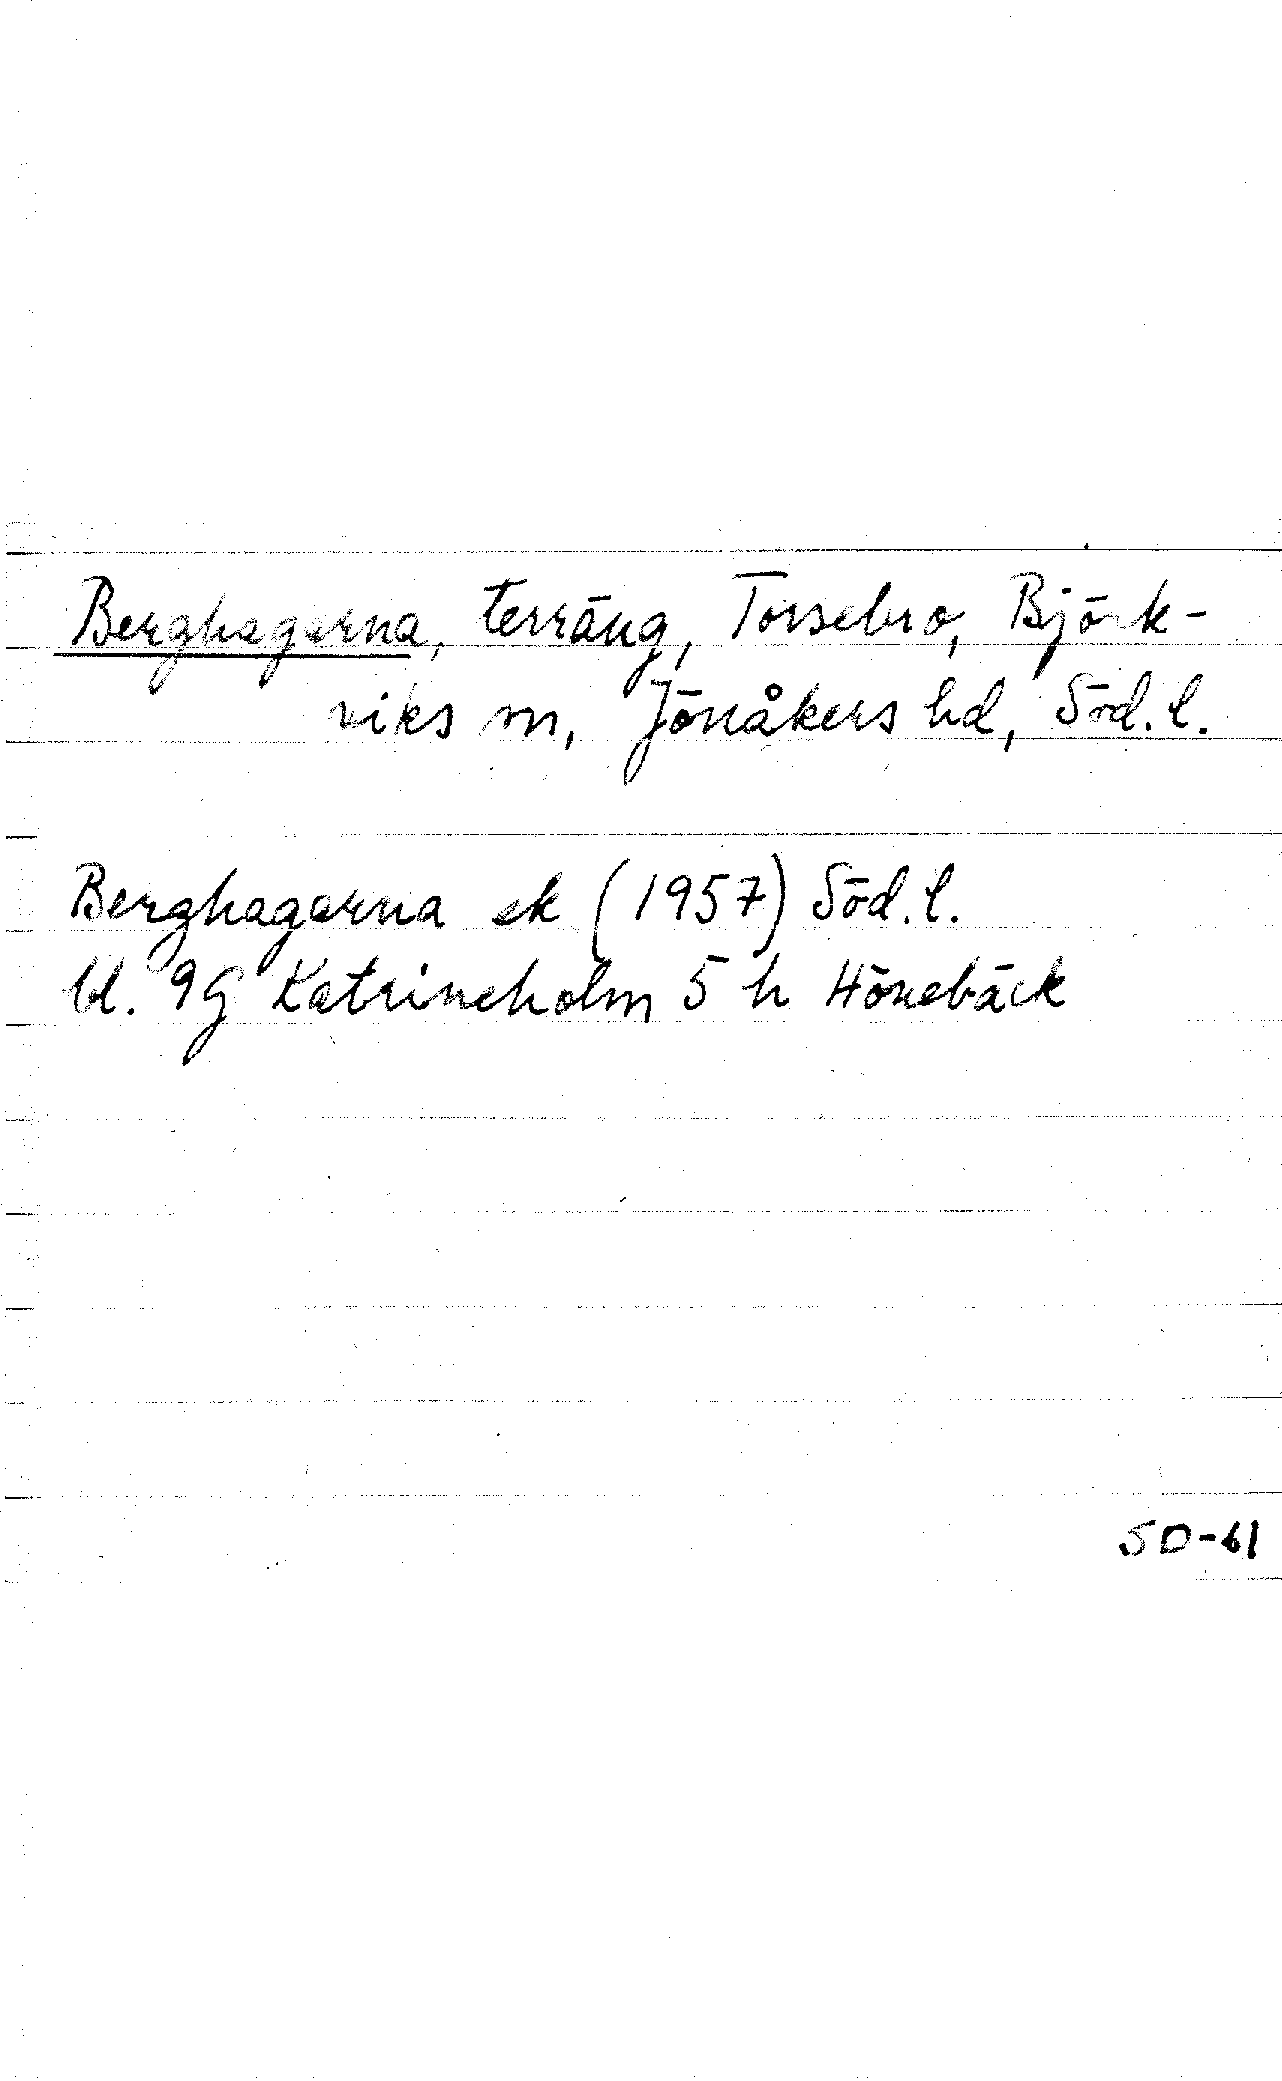 Berghagarna, terräng, Torsebro, Björk-
viks sn, Jönåkers hd, Söd. l.
Berghagarna ek (1957) Söd. l.
bl. 9G Katrineholm 5 h Hönebäck
SD-61